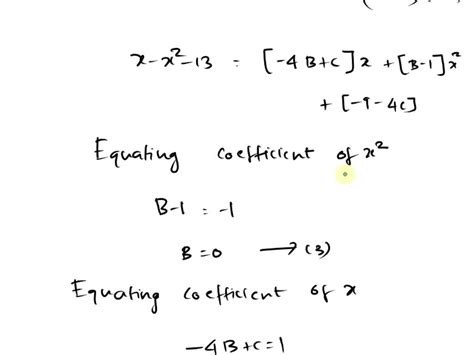 x-x²-13 = [-4B+C]x +[B-1]x²
+[-9-4C]
Equating coefficient of x²
B-1 = -1
B=0 → (3)
Equating coefficient of x
-4B+C=1